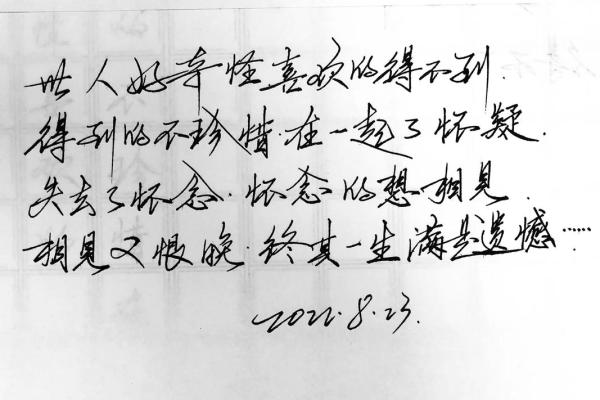 世人好奇怪喜欢的得不到.
得到的不珍惜.在一起了怀疑.
失去了怀念.怀念的想相見.
相見又恨晚.终其一生满是遗憾……
2022.8.23.